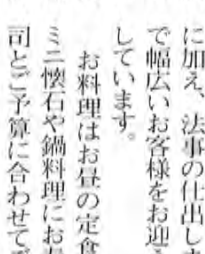 に加え、法事の仕出しま
で幅広いお客様をお迎え
しています。
お料理はお昼の定食
ミニ懐石や鍋料理にお寿
司とご予算に合わせてご